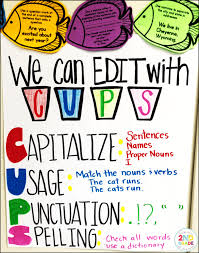 Are you excited
about next year?
We live in
Cheyenne,
Wyoming.
We can EDIT with
CUPS
CAPITALIZE: Sentences
Names
Proper Nouns
I
USAGE: Match the nouns & verbs
The cat runs.
The cats run.
PUNCTUATION: .!?, " "
SPELLING: Check all words
use a dictionary
2ND
GRADE